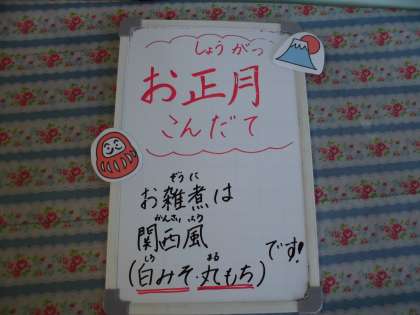 しょうがつ
お正月
こんだて
ぞうに
お雑煮は
かんさいふう
関西風
しろ まる
(白みそ・丸もち)です!